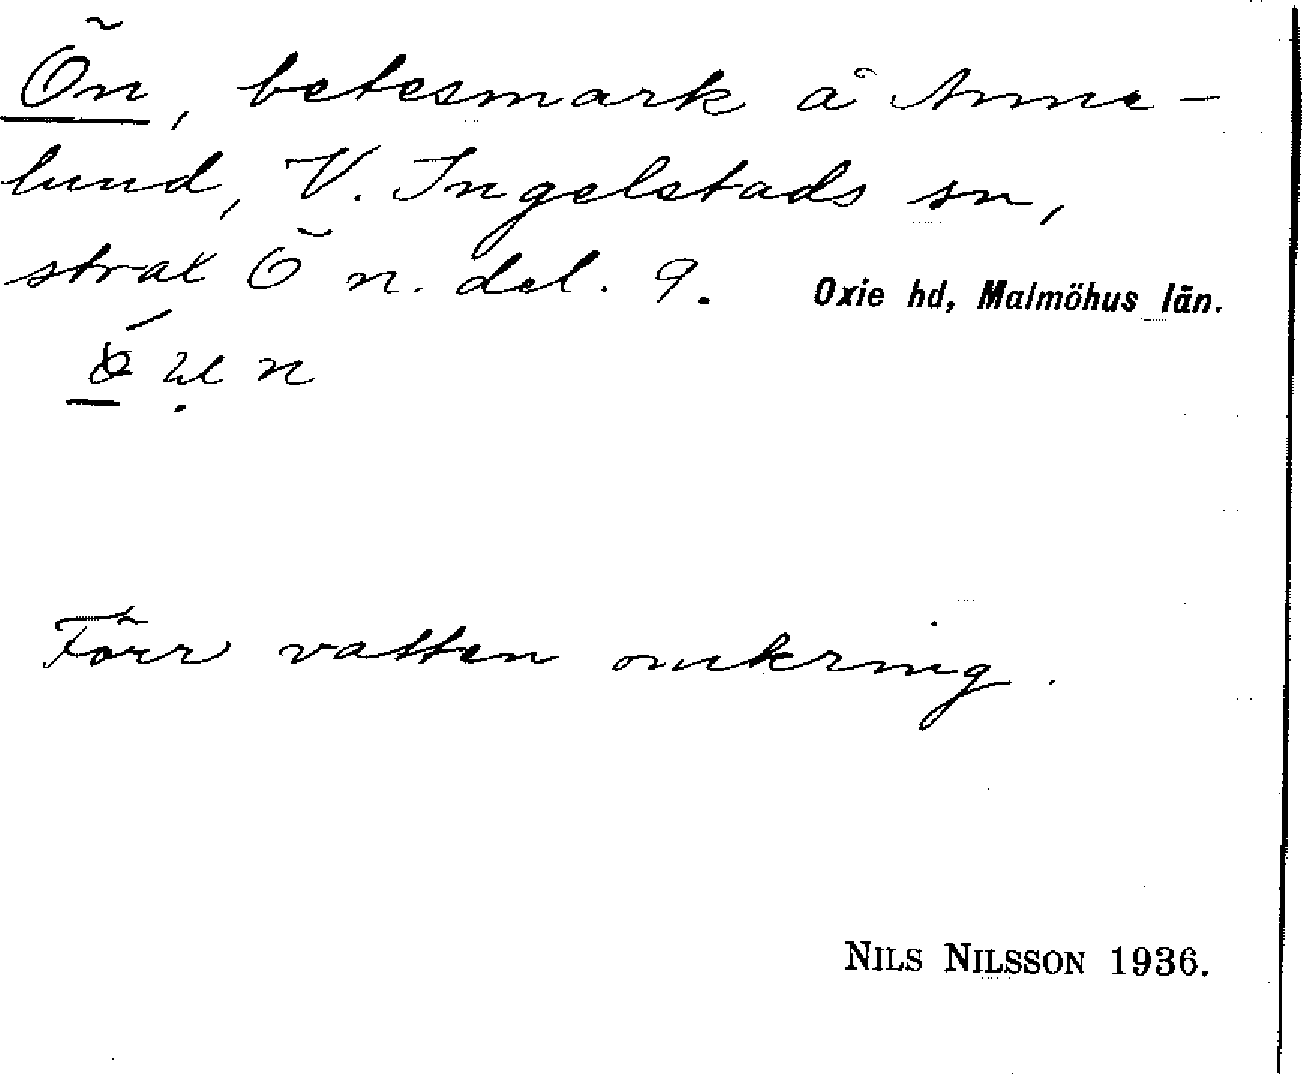 Ön, betesmark å Anne-
lund, V. Ingelstads sn,
strax Ö n. del. 9. Oxie hd, Malmöhus län.
Förr vatten omkring.
NILS NILSSON 1936.